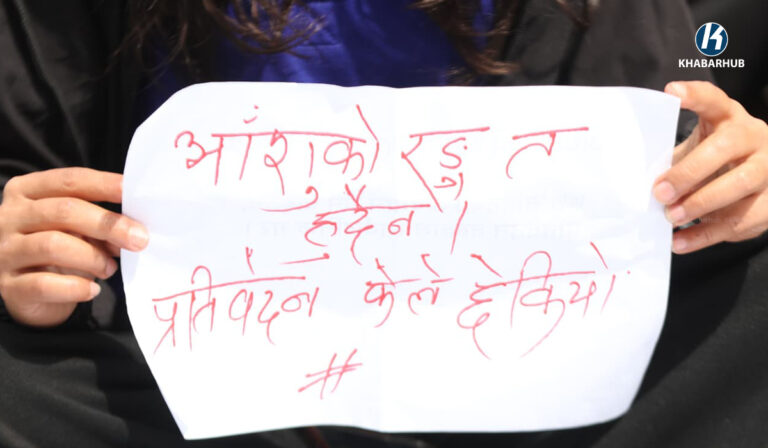 KHABARHUB
आँशुको रङ्ग त
हुदैन।
प्रतिवेदन केले छेकियो
#